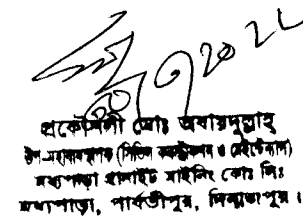 প্রকৌশলী মোঃ অবায়দুল্লাহ
উপ-মহাব্যবস্থাপক (সিভিল কনস্ট্রাকশন ও মেইন্টেনেন্স)
মধ্যপাড়া গ্রানাইট মাইনিং কোং লিঃ
মধ্যপাড়া, পার্বতীপুর, দিনাজপুর।